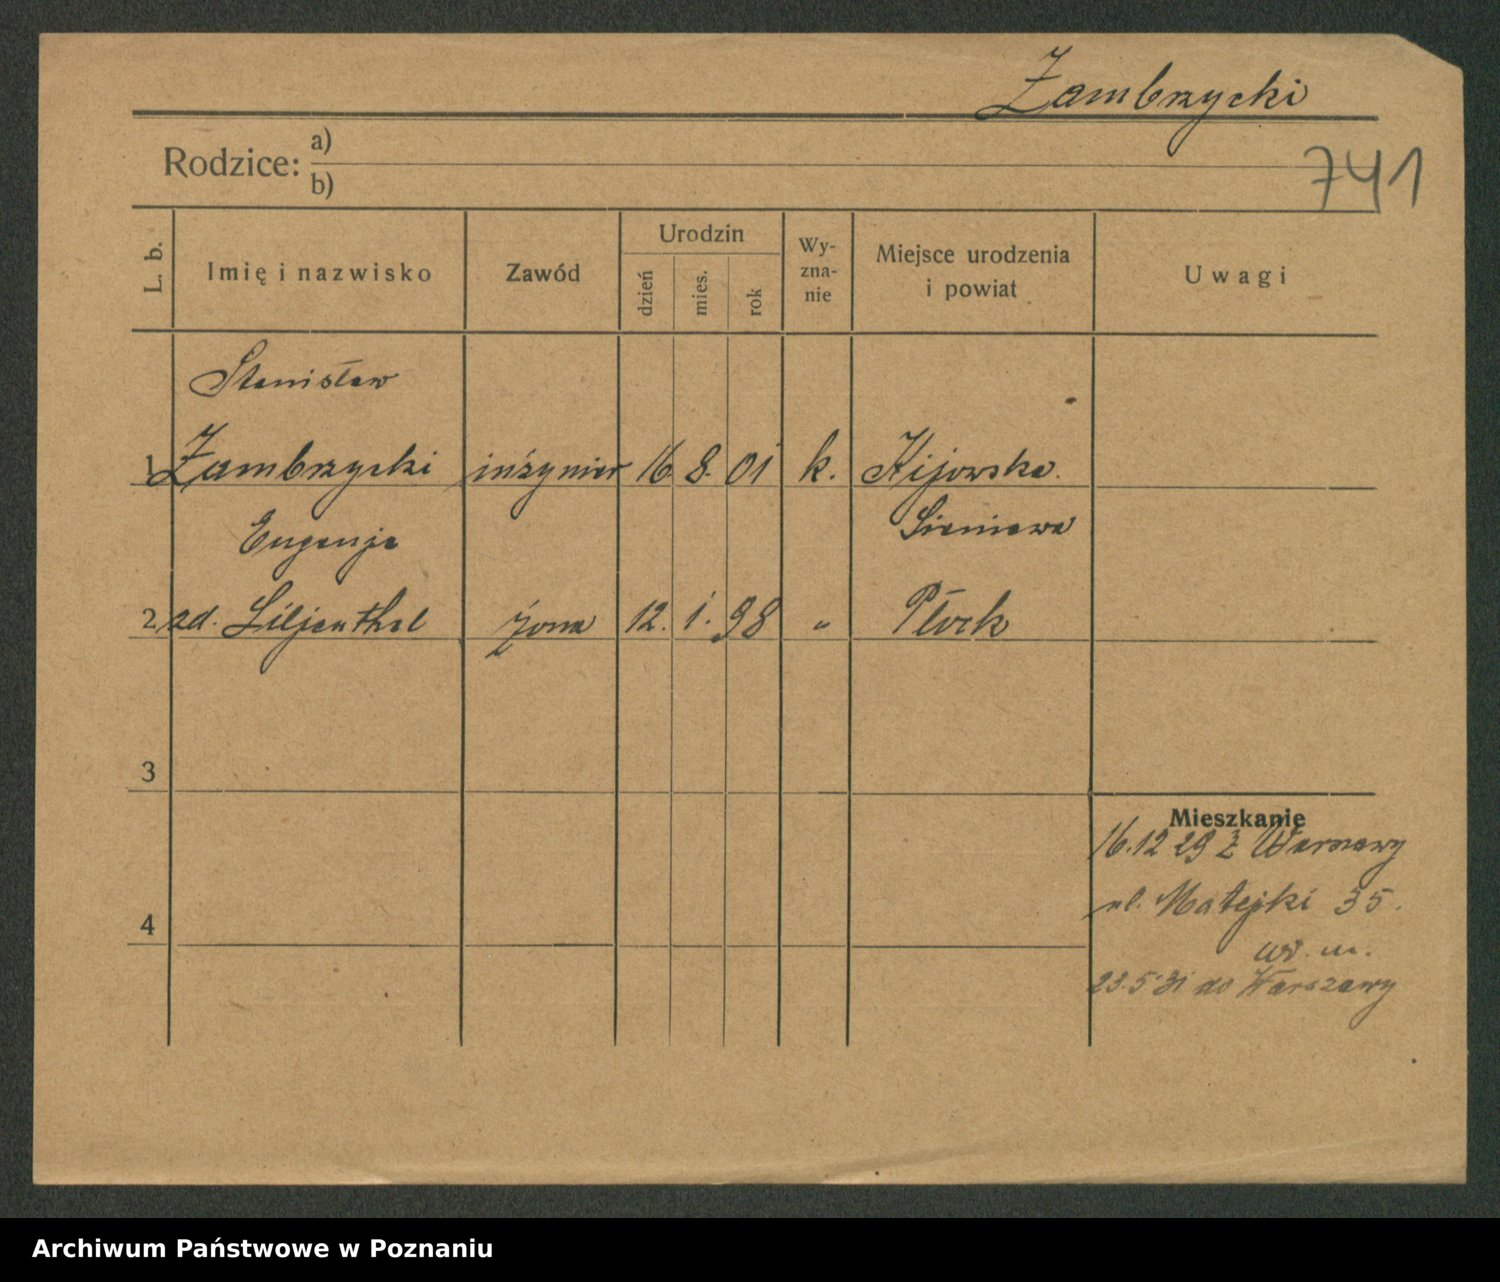 Zambrzycki
Rodzice: a)
b)
741
L. b.
Imię i nazwisko
Zawód
Urodzin
dzień
mies.
rok
Wy-
zna-
nie
Miejsce urodzenia
i powiat
Uwagi
Stanisław
1 Zambrzycki inżynier 16 8. 01 k. Kijowska
Eugenja Sieniawa
2 zd. Liljenthal żona 12. 1. 98 " Płock
3
4
Mieszkanie
16.12 29 z Warszawy
ul. Matejki 35.
23.5 31 do Warszawy
Archiwum Państwowe w Poznaniu